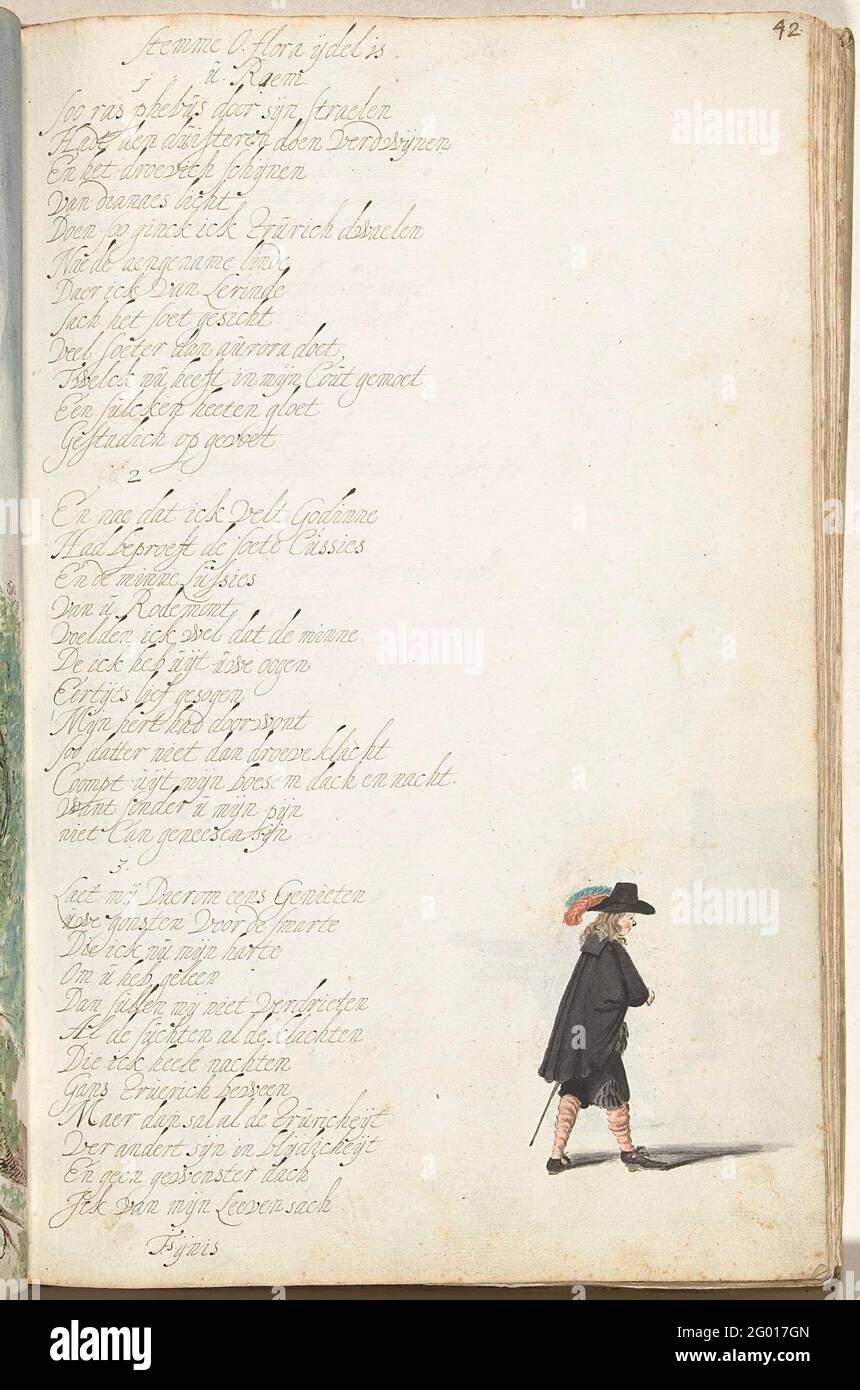 42
Stemme O. flora ydel is
ú. Raem
1
Soo ras phebús door syn straelen
Hadt den dúisteren doen Verdwijnen
En het droevich schijnen
Van dianaes licht
Doen soo ginck ick trúrich dwaelen
Nae de aengename linde
Daer ick Van Lerinde
Sach het soet gesicht
Veel soeter dan aúrora doet,
Twelck nú heeft in mijn Coút gemoet
Een súlcken heeten gloet
Gestadich op gevoet
2
En nae dat ick Velt Godinne
Had beproeft de soete Cússies
En de minne Lússies
Van ú Rodemont
Voelden ick wel dat de minne
De ick heb úyt úwe oogen
Eertijts lief gesogen
Mijn hert had doorwont
Soo datter niet dan droeve klacht
Coompt úyt mijn boesem dach en nacht.
Want sonder ú mijn pijn
niet Can geneesen sijn
3.
Laet mij Daerom eens Genieten
úwe gonsten Voor de smarte
Die ick nú mijn harte
Om ú heb geleen
Dan súllen mij niet Verdrieten
Al de súchten al de klachten
Die ick heele nachten
Gans trúerich beween
Maer dan sal al de trúricheijt
Ver andert sijn in blijdicheijt
En geen gewenster dach
Ick Van mijn Leeven sach
Fijnis
alamy
alamy
alamy
alamy
Image ID: 2G017GN
www.alamy.com